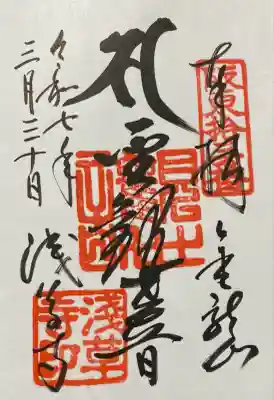 奉拝
坂東拾三番
金龍山
聖観世音
令和七年
三月三十日
浅草寺
淺草寺印